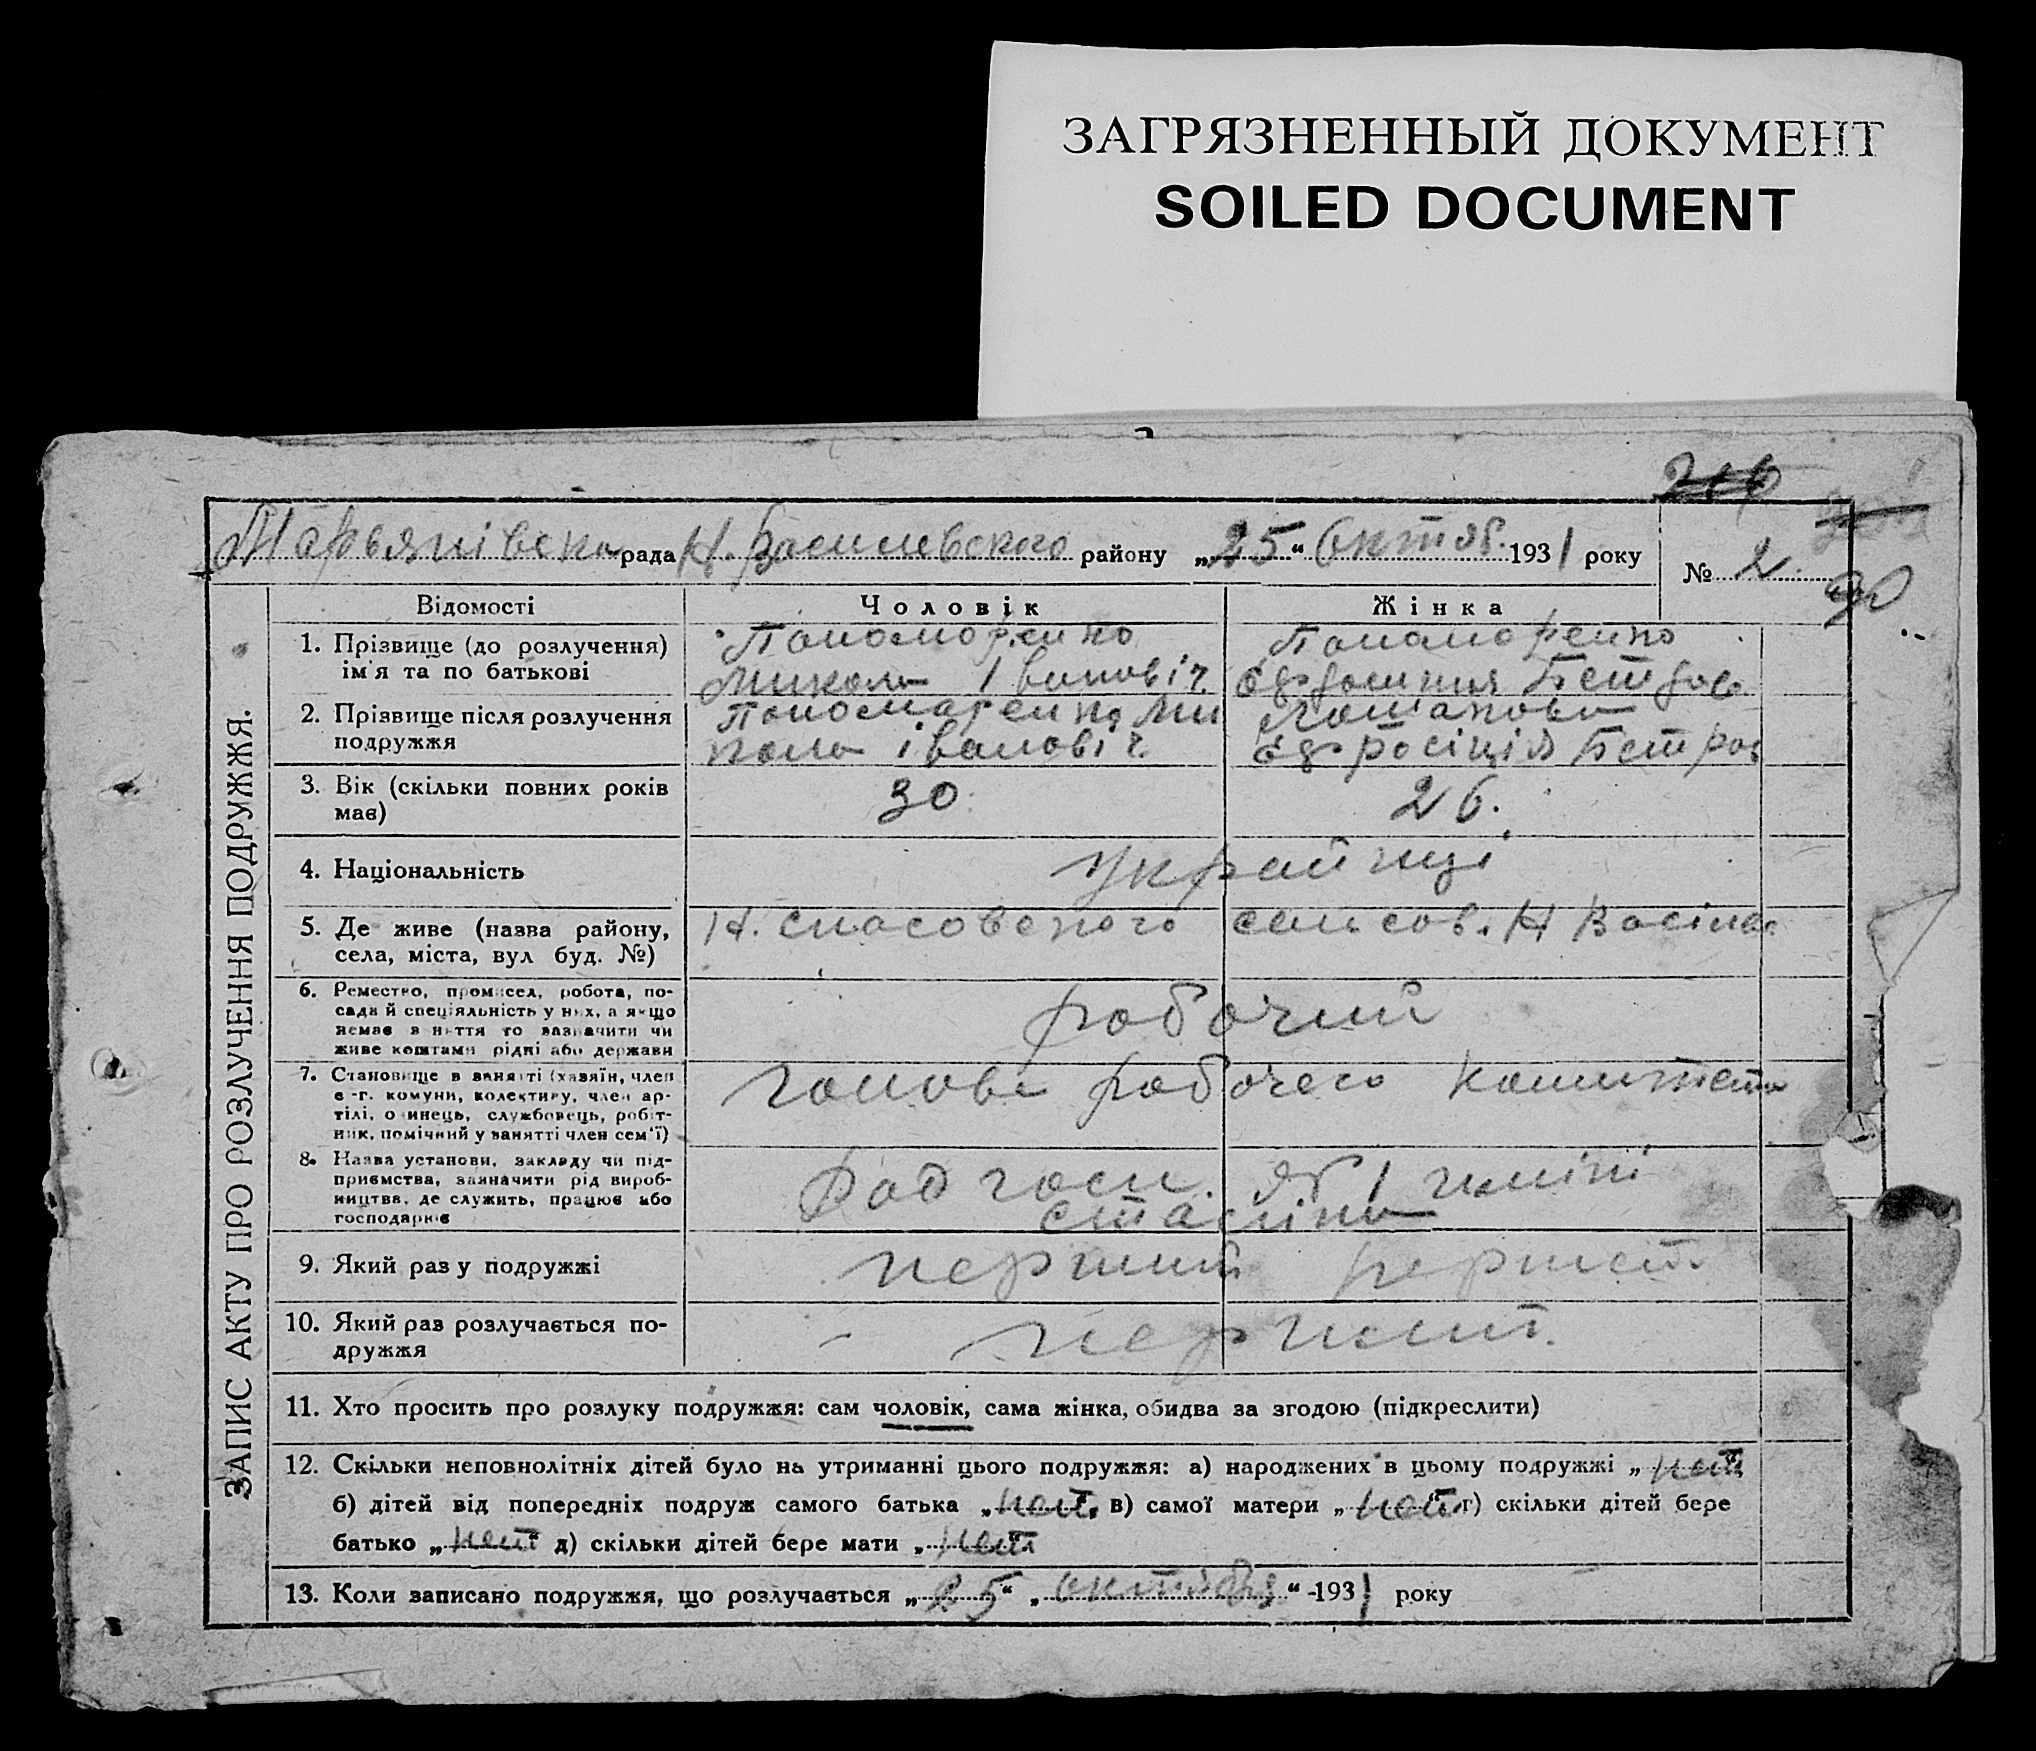 ЗАГРЯЗНЕННЫЙ ДОКУМЕНТ
SOILED DOCUMENT
216
Марьянівска рада Н. Василевского району „25“ Октяб. 1931 року
№ 2
ЗАПИС АКТУ ПРО РОЗЛУЧЕННЯ ПОДРУЖЖЯ.
Відомості Чоловік Жінка
1. Прізвище (до розлучення) ім'я та по батькові
Пономоренко
Микола Iвановіч
Пономоренко
Петров
2. Прізвище після розлучення подружжя
Пономаренко Ми
кола івановіч
Єфросінія Петров
3. Вік (скільки повних років має) 30 26.
4. Національність Украйнці
5. Де живе (назва району, села, міста, вул буд. №) Н. спасовского сельсов. Н Васілев
6. Ремество, промисел, робота, посада й спеціяльність у них, а якщо немає заняття то зазначити чи живе коштами рідні або держави
робочий
7. Становище в занятті (хазяїн, член с.-г. комуни, колективу, член артілі, одинець, службовець, робітник, помічний у занятті член сем'ї)
голова робочего комитета
8. Назва установи, закладу чи підприємства, зазначити рід виробництва, де служить, працює або господарює
Рад госп. № 1 імені
сталіна
9. Який раз у подружжі перший
10. Який раз розлучається подружжя
11. Хто просить про розлуку подружжя: сам чоловік, сама жінка, обидва за згодою (підкреслити)
12. Скільки неповнолітніх дітей було на утриманні цього подружжя: а) народжених в цьому подружжі „нет“
б) дітей від попередніх подруж самого батька „нет“ в) самої матери „нет“ г) скільки дітей бере
батько „нет“ д) скільки дітей бере мати „нет“
13. Коли записано подружжя, що розлучається „25“ „октября“ 1931 року